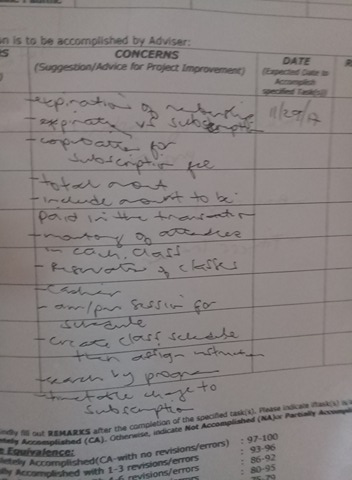 on is to be accomplished by Adviser:
CONCERNS
(Suggestion/Advice for Project Improvement)
DATE
(Expected Date to
Accomplish
specified Task(s))
- expiration of membership
11/29/17
- expiration vs subscription
- computation for
subscription fee
- total amount
- include amount to be
paid in the transaction
- monitoring of attendees
in each class
- Reservation of classes
- Cashier
- am/pm session for
schedule
- create class schedule
then assign instructor
- search by program
- timetable change to
subscription
indly fill out REMARKS after the completion of the specified task(s). Please indicate
etely Accomplished (CA). Otherwise, indicate Not Accomplished (NA) or Partially Accomp
e Equivalence:
letely Accomplished(CA-with no revisions/errors) : 97-100
ly Accomplished with 1-3 revisions/errors : 93-96
: 86-92
revisions/errors : 80-95
75-79